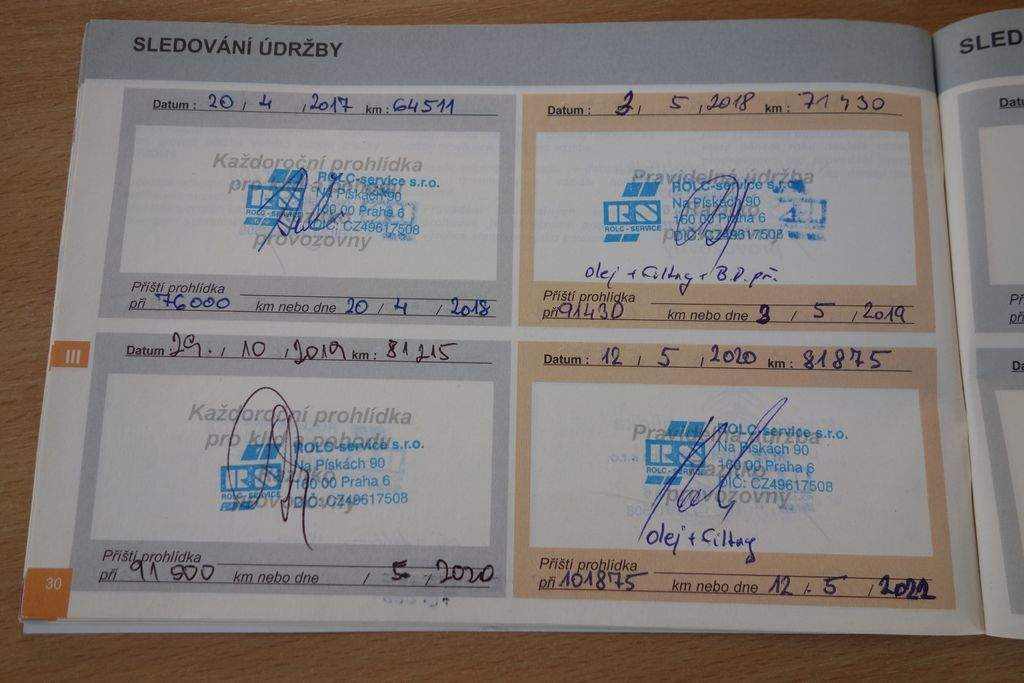 SLEDOVÁNÍ ÚDRŽBY
SLED
Datum : 20 / 4 / 2017 km : 64511
Každoroční prohlídka
pro klid a pohodu
provozovny
ROLC-service s.r.o.
Na Pískách 90
160 00 Praha 6
DIČ: CZ49617508
RS
ROLC - SERVICE
Příští prohlídka
při 76000 km nebo dne 20 / 4 / 2018
Datum : 2 / 5 / 2018 km : 71430
Pravidelná údržba
provozovny
ROLC-service s.r.o.
Na Pískách 90
160 00 Praha 6
DIČ: CZ49617508
RS
ROLC - SERVICE
olej + filtry + B.D. př.
Příští prohlídka
při 91430 km nebo dne 2 / 5 / 2019
Datum : 29. / 10 / 2019 km : 81215
Každoroční prohlídka
pro klid a pohodu
provozovny
ROLC-service s.r.o.
Na Pískách 90
160 00 Praha 6
DIČ: CZ49617508
RS
ROLC - SERVICE
Příští prohlídka
při 91 500 km nebo dne / 5 / 2020
Datum : 12 / 5 / 2020 km : 81875
Pravidelná údržba
provozovny
ROLC-service s.r.o.
Na Pískách 90
160 00 Praha 6
DIČ: CZ49617508
RS
ROLC - SERVICE
olej + filtry
Příští prohlídka
při 101875 km nebo dne 12 . 5 / 2022
III
30